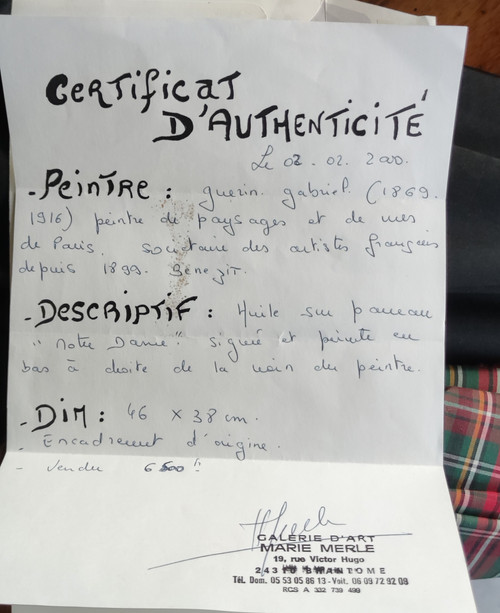 CERTIFICAT
D'AUTHENTICITÉ
Le 02.02.2000.
- PEINTRE : guerin. gabriel. (1869.
1916) peintre de paysages et de vues
de Paris. Societaire des artistes français
depuis 1899. Benezit.
- DESCRIPTIF : Huile sur panneau
"notre Dame" signée et située en
bas à droite de la main du peintre.
- DIM : 46 x 38 cm.
- Encadrement d'origine.
- Vendu 6500
GALERIE D'ART
MARIE MERLE
19, rue Victor Hugo
BRANTOME
Tél. Dom. 05 53 05 86 13 - Voit. 06 09 72 92 09
RCS A 332 739 499